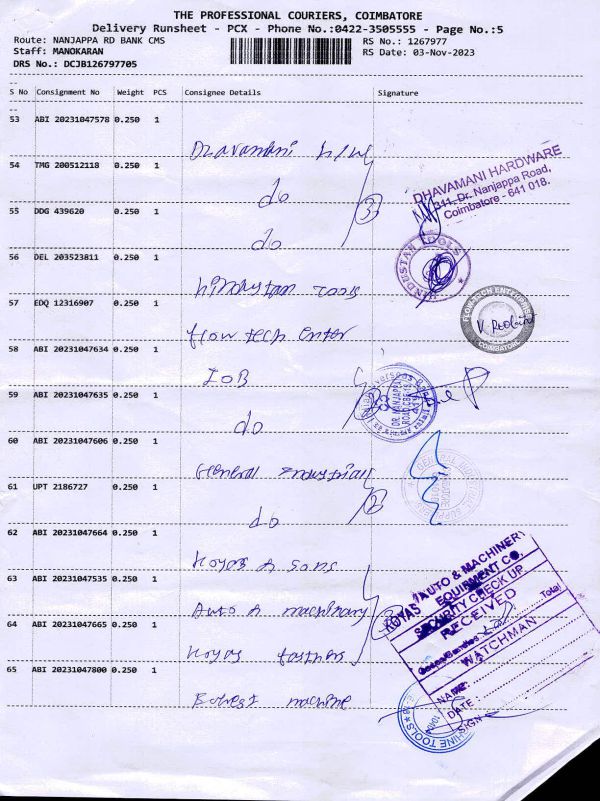 THE PROFESSIONAL COURIERS, COIMBATORE
Delivery Runsheet - PCX - Phone No.:0422-3505555 - Page No.:5
Route: NANJAPPA RD BANK CMS RS No.: 1267977
Staff: MANOKARAN RS Date: 03-Nov-2023
DRS No.: DCJB126797705
S No Consignment No Weight PCS Consignee Details Signature
53 ABI 20231047578 0.250 1
Dhavamani h/w
54 TMG 200512118 0.250 1
do 3
DHAVAMANI HARDWARE
311, Dr. Nanjappa Road,
Coimbatore - 641 018.
55 DDG 439620 0.250 1
do
HINDUSTAN TOOLS
56 DEL 203523811 0.250 1
hindustan Tools
57 EDQ 12316907 0.250 1
flow tech enter
FLOWTECH ENTERPRISES
COIMBATORE
58 ABI 20231047634 0.250 1
IOB
59 ABI 20231047635 0.250 1
do
DR. NANJAPPA
60 ABI 20231047606 0.250 1
General Industrial
61 UPT 2186727 0.250 1
do 2
62 ABI 20231047664 0.250 1
Koyas & Sons
63 ABI 20231047535 0.250 1
Auto & machinary
64 ABI 20231047665 0.250 1
Koyas fastners
KOYAS AUTO & MACHINERY
EQUIPMENT CO.
SECURITY CHECK UP
RECEIVED
Total
WATCHMAN
NAME:
DATE:
SIGN
65 ABI 20231047800 0.250 1
machine
MACHINE TOOLS